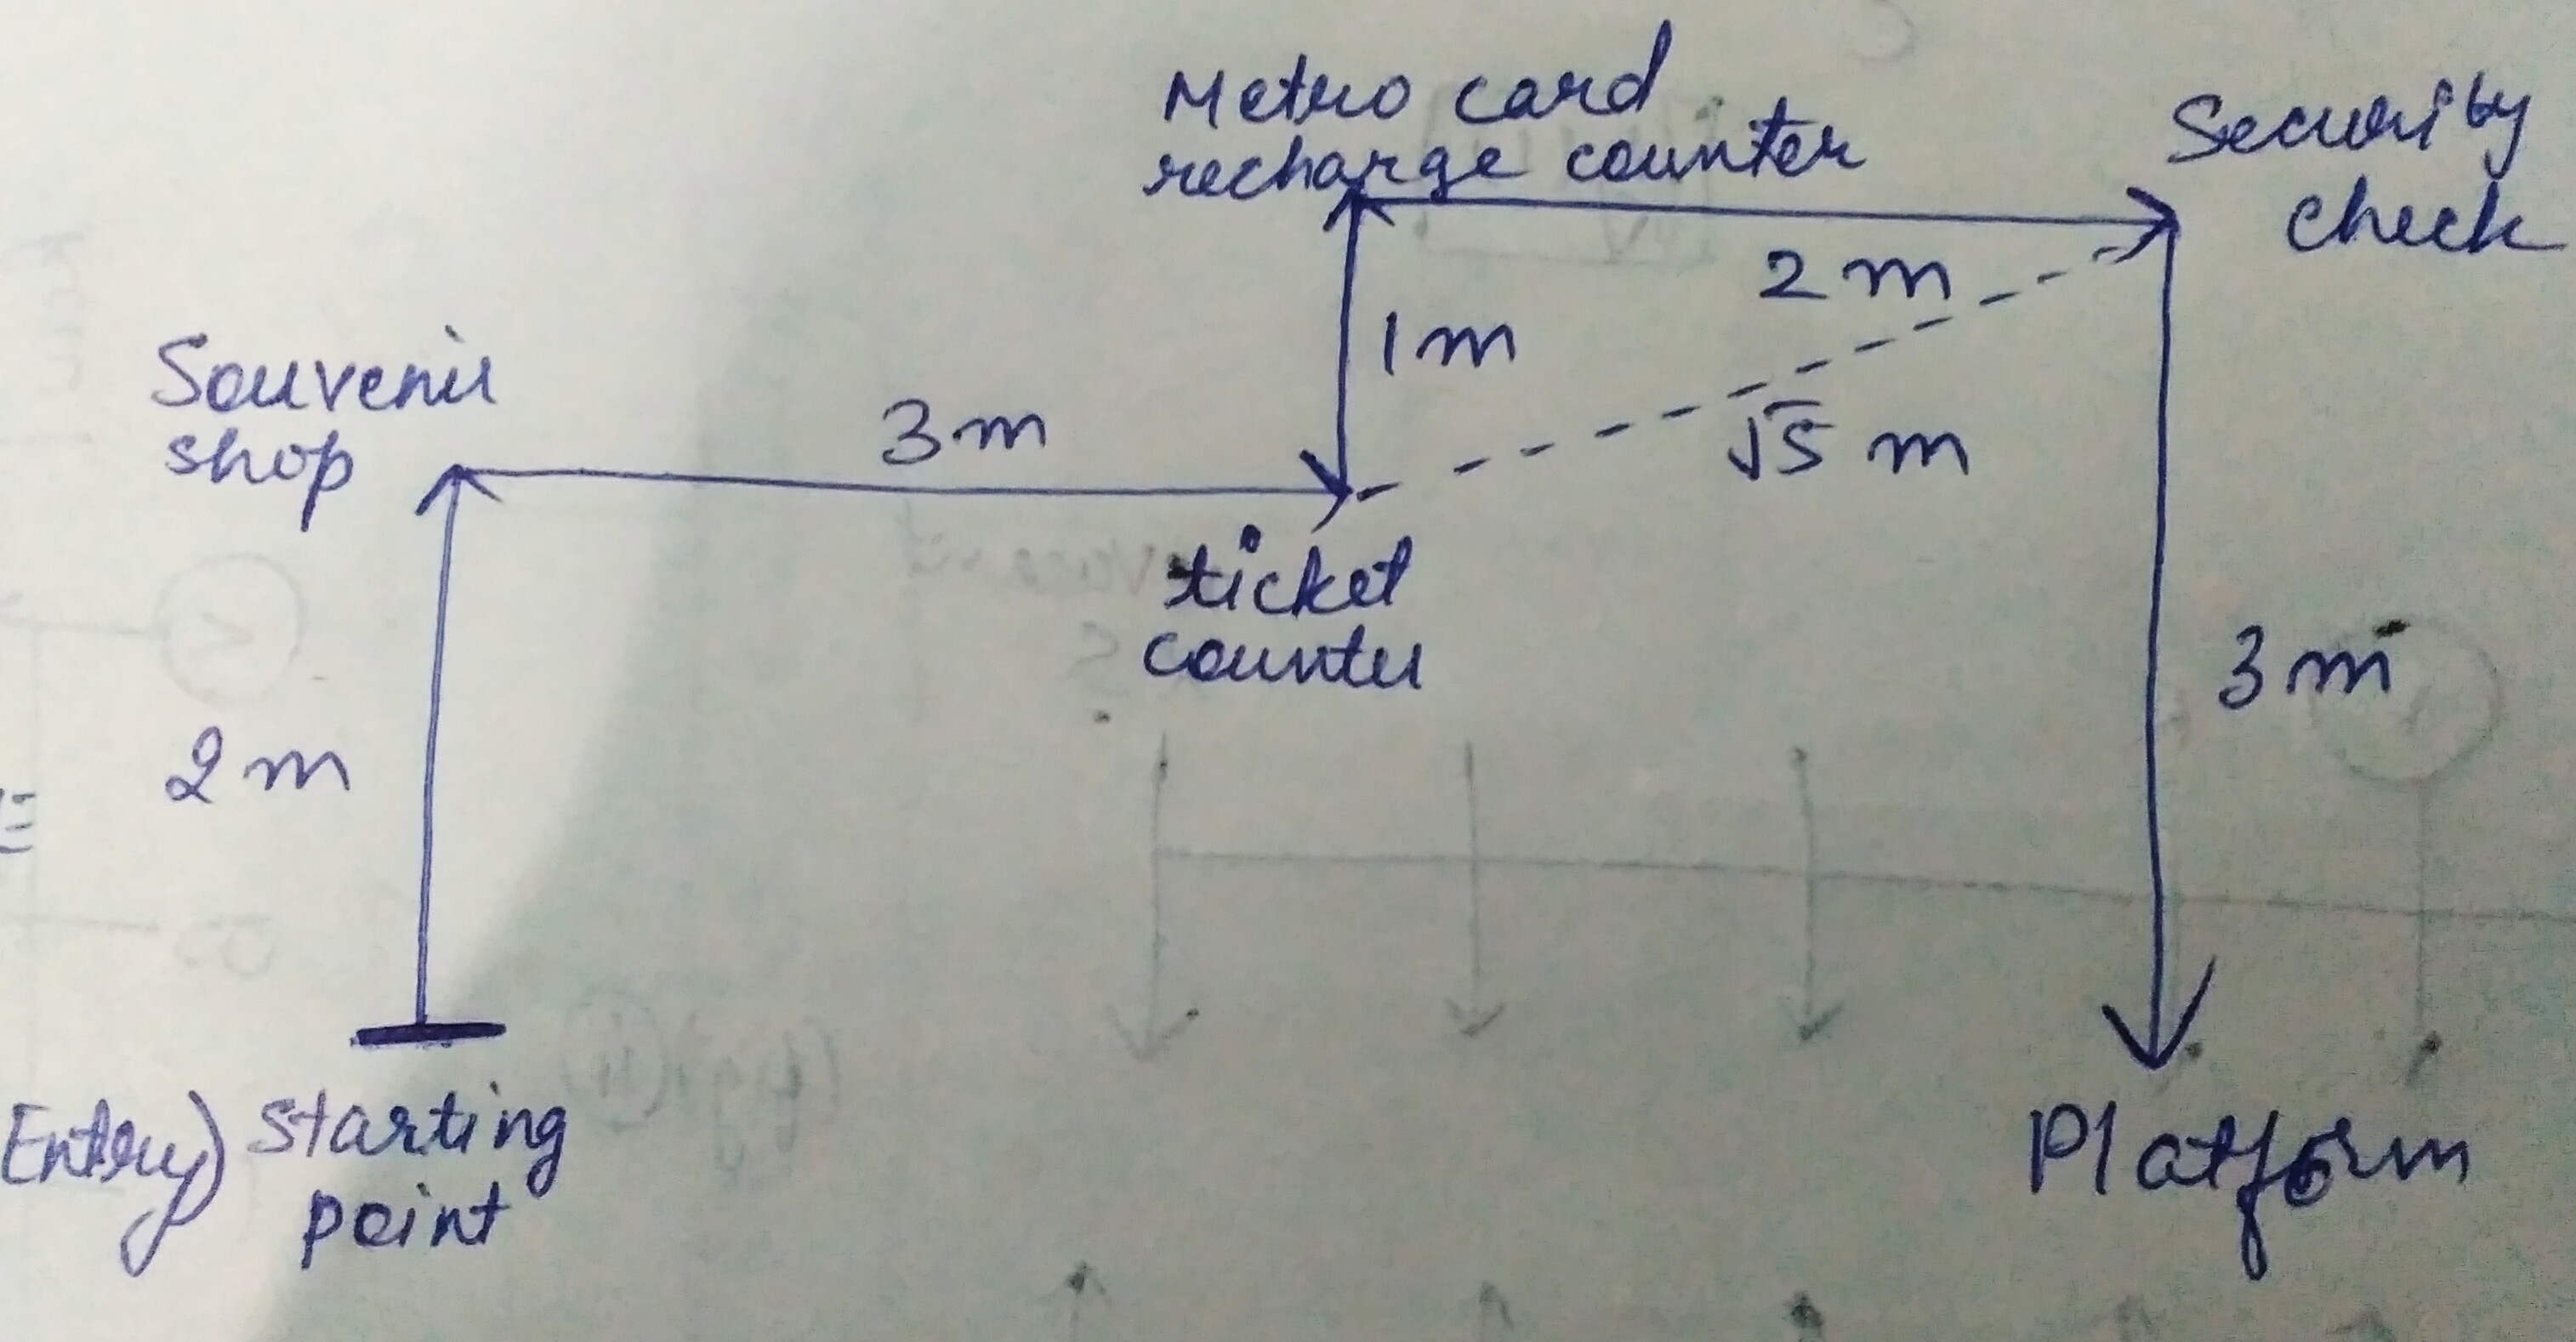 Metro card
recharge counter
Security
check
2 m
1 m
√5 m
Souvenir
shop
3 m
ticket
counter
2 m
3 m
Entry) Starting
point
Platform